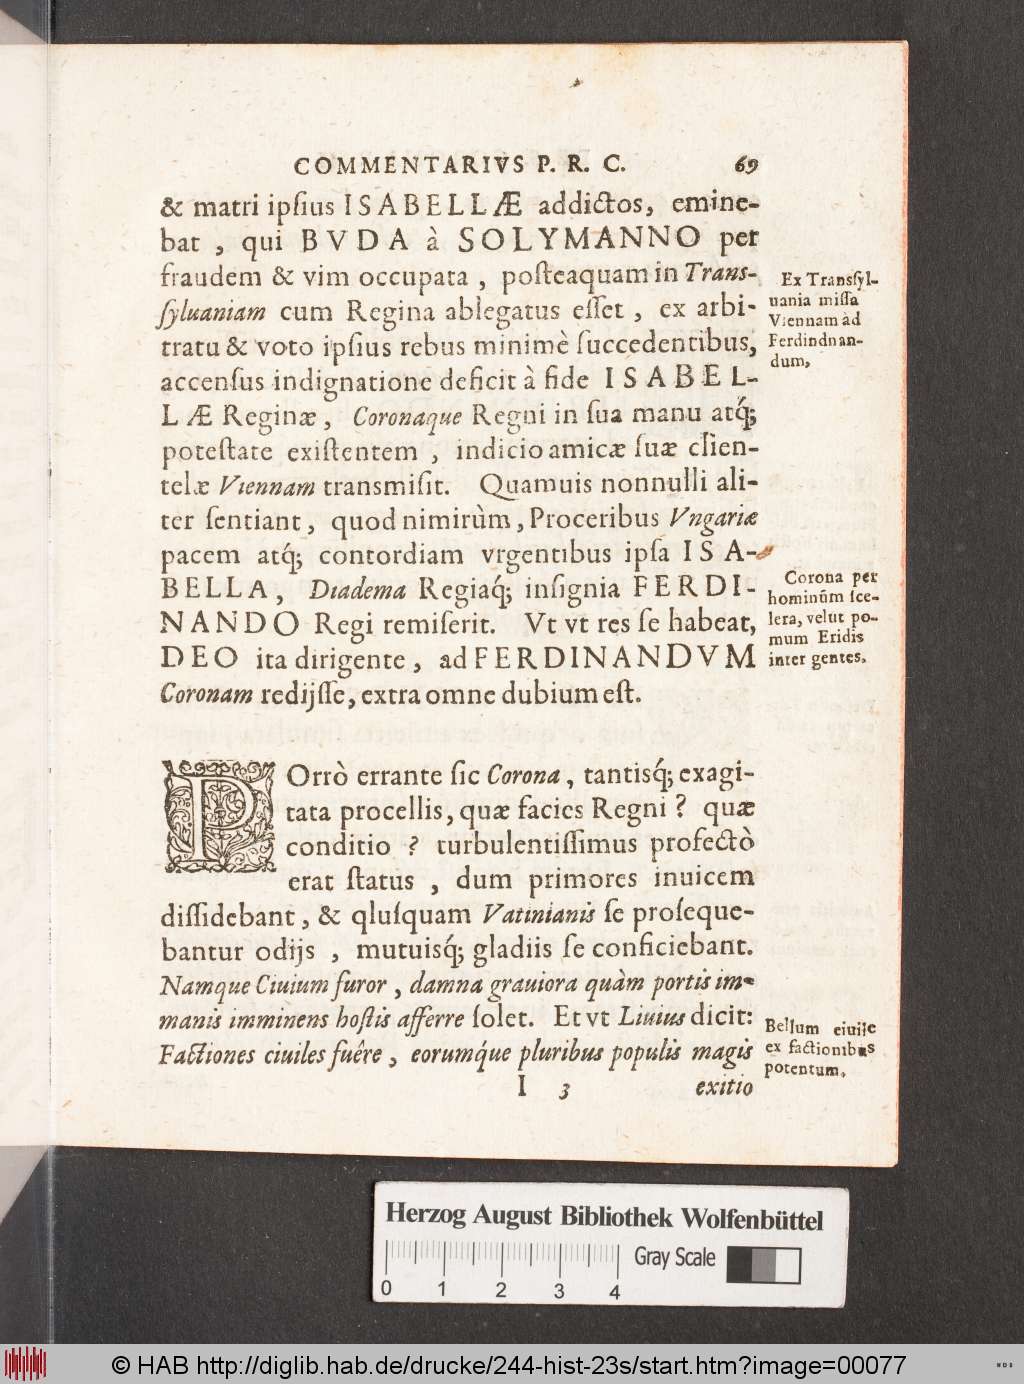 COMMENTARIVS P. R. C. 69
& matri ipſius ISABELLÆ addictos, emine-
bat , qui BVDA à SOLYMANNO per
fraudem & vim occupata , poſteaquam in Trans-
ſyluaniam cum Regina ablegatus eſſet , ex arbi-
tratu & voto ipſius rebus minimè ſuccedentibus,
accenſus indignatione deficit à fide ISABEL-
LÆ Reginæ , Coronaque Regni in ſua manu atq́;
poteſtate exiſtentem , indicio amicæ ſuæ clien-
telæ Viennam transmiſit. Quamuis nonnulli ali-
ter ſentiant, quod nimirùm, Proceribus Vngariæ
pacem atq́; contordiam vrgentibus ipſa ISA-
BELLA, Diadema Regiaq́; inſignia FERDI-
NANDO Regi remiſerit. Vt vt res ſe habeat,
DEO ita dirigente, ad FERDINANDVM
Coronam redijſſe, extra omne dubium eſt.
Ex Transſyl-
uania miſſa
Viennam ad
Ferdindnan-
dum,
Corona per
hominũm ſce-
lera, velut po-
mum Eridis
inter gentes.
POrrò errante ſic Corona, tantisq́; exagi-
tata procellis, quæ facies Regni ? quæ
conditio ? turbulentiſſimus profectò
erat ſtatus , dum primores inuicem
diſſidebant, & qluſquam Vatinianis ſe proſeque-
bantur odijs , mutuisq́; gladiis ſe conficiebant.
Namque Ciuium furor , damna grauiora quàm portis im-
manis imminens hoſtis afferre ſolet. Et vt Liuius dicit:
Factiones ciuiles fuêre , eorumq́ue pluribus populis magis
Bellum ciuile
ex factionibus
potentum.
I 3 exitio
Herzog August Bibliothek Wolfenbüttel
Gray Scale
0 1 2 3 4
© HAB http://diglib.hab.de/drucke/244-hist-23s/start.htm?image=00077